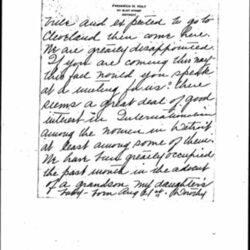 FREDERICK M. HOLT
DETROIT
and expected to go to
Cleveland then come here.
We are greatly disappointed.
If you are coming this way
this fall would you speak
at a meeting for us? There
seems a great deal of good
interest in Internationalism
among the women in Detroit
at least among some of them.
We have been greatly occupied
the past month in the advent
of a grandson, my daughter's
baby - born Aug 21st. Dorothy